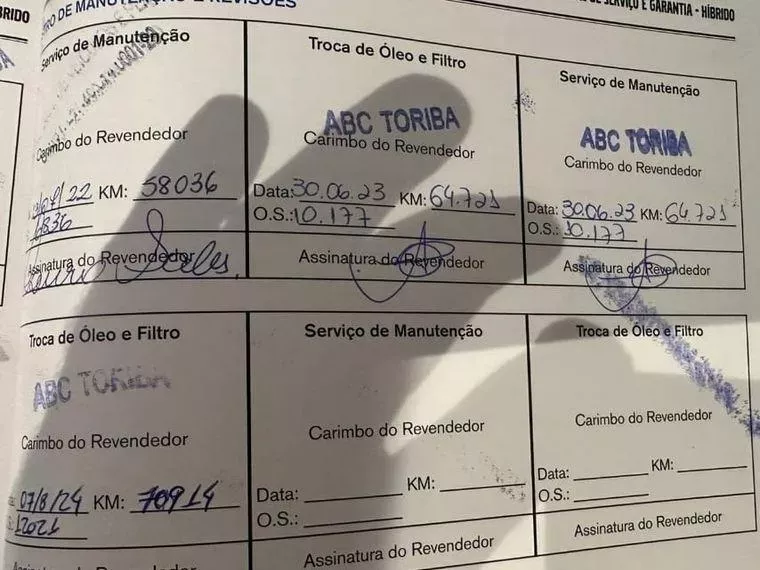 DE SERVIÇO E GARANTIA - HÍBRIDO
BRIDO
Serviço de Manutenção
Carimbo do Revendedor
22 KM: 58036
Assinatura do Revendedor
Troca de Óleo e Filtro
ABC TORIBA
Carimbo do Revendedor
Data: 30.06.23 KM: 64.721
O.S.: 10.177
Assinatura do Revendedor
Serviço de Manutenção
ABC TORIBA
Carimbo do Revendedor
Data: 30.06.23 KM: 64.721
O.S.: 10.177
Assinatura do Revendedor
Troca de Óleo e Filtro
ABC TORIBA
Carimbo do Revendedor
07/8/24 KM: 70914
12021
Assinatura do Revendedor
Serviço de Manutenção
Carimbo do Revendedor
Data: KM:
O.S.:
Assinatura do Revendedor
Troca de Óleo e Filtro
Carimbo do Revendedor
Data: KM:
O.S.:
Assinatura do Revendedor